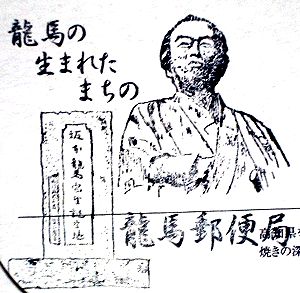 龍馬の
生まれた
まちの
坂本龍馬先生誕生地
龍馬郵便局
高知県
焼きの深